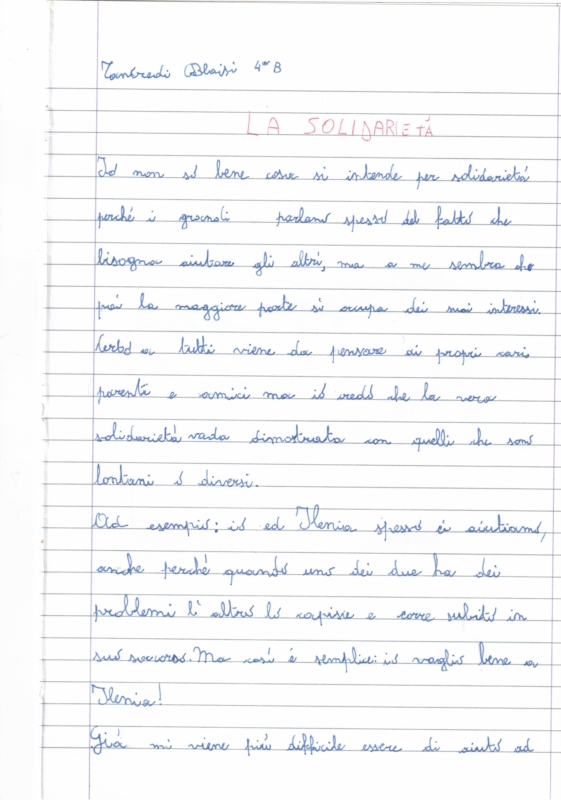 Tancredi Blaisi 4ª B
LA SOLIDARIETÁ
Io non só bene cosa si intende per solidarietá
perché i grandi parlano spesso del fatto che
bisogna aiutare gli altri, ma a me sembra che
poi la maggiore parte si occupa dei suoi interessi.
Certo a tutti viene da pensare ai propri cari
parenti e amici ma io credo che la vera
solidarietá vada dimostrata con quelli che sono
lontani o diversi.
Ad esempio: io ed Ilenia spesso ci aiutiamo,
anche perché quando uno dei due ha dei
problemi l'altro lo capisce e corre subito in
suo soccorso. Ma cosí é semplice: io voglio bene a
Ilenia!
Giá mi viene piú difficile essere di aiuto ad